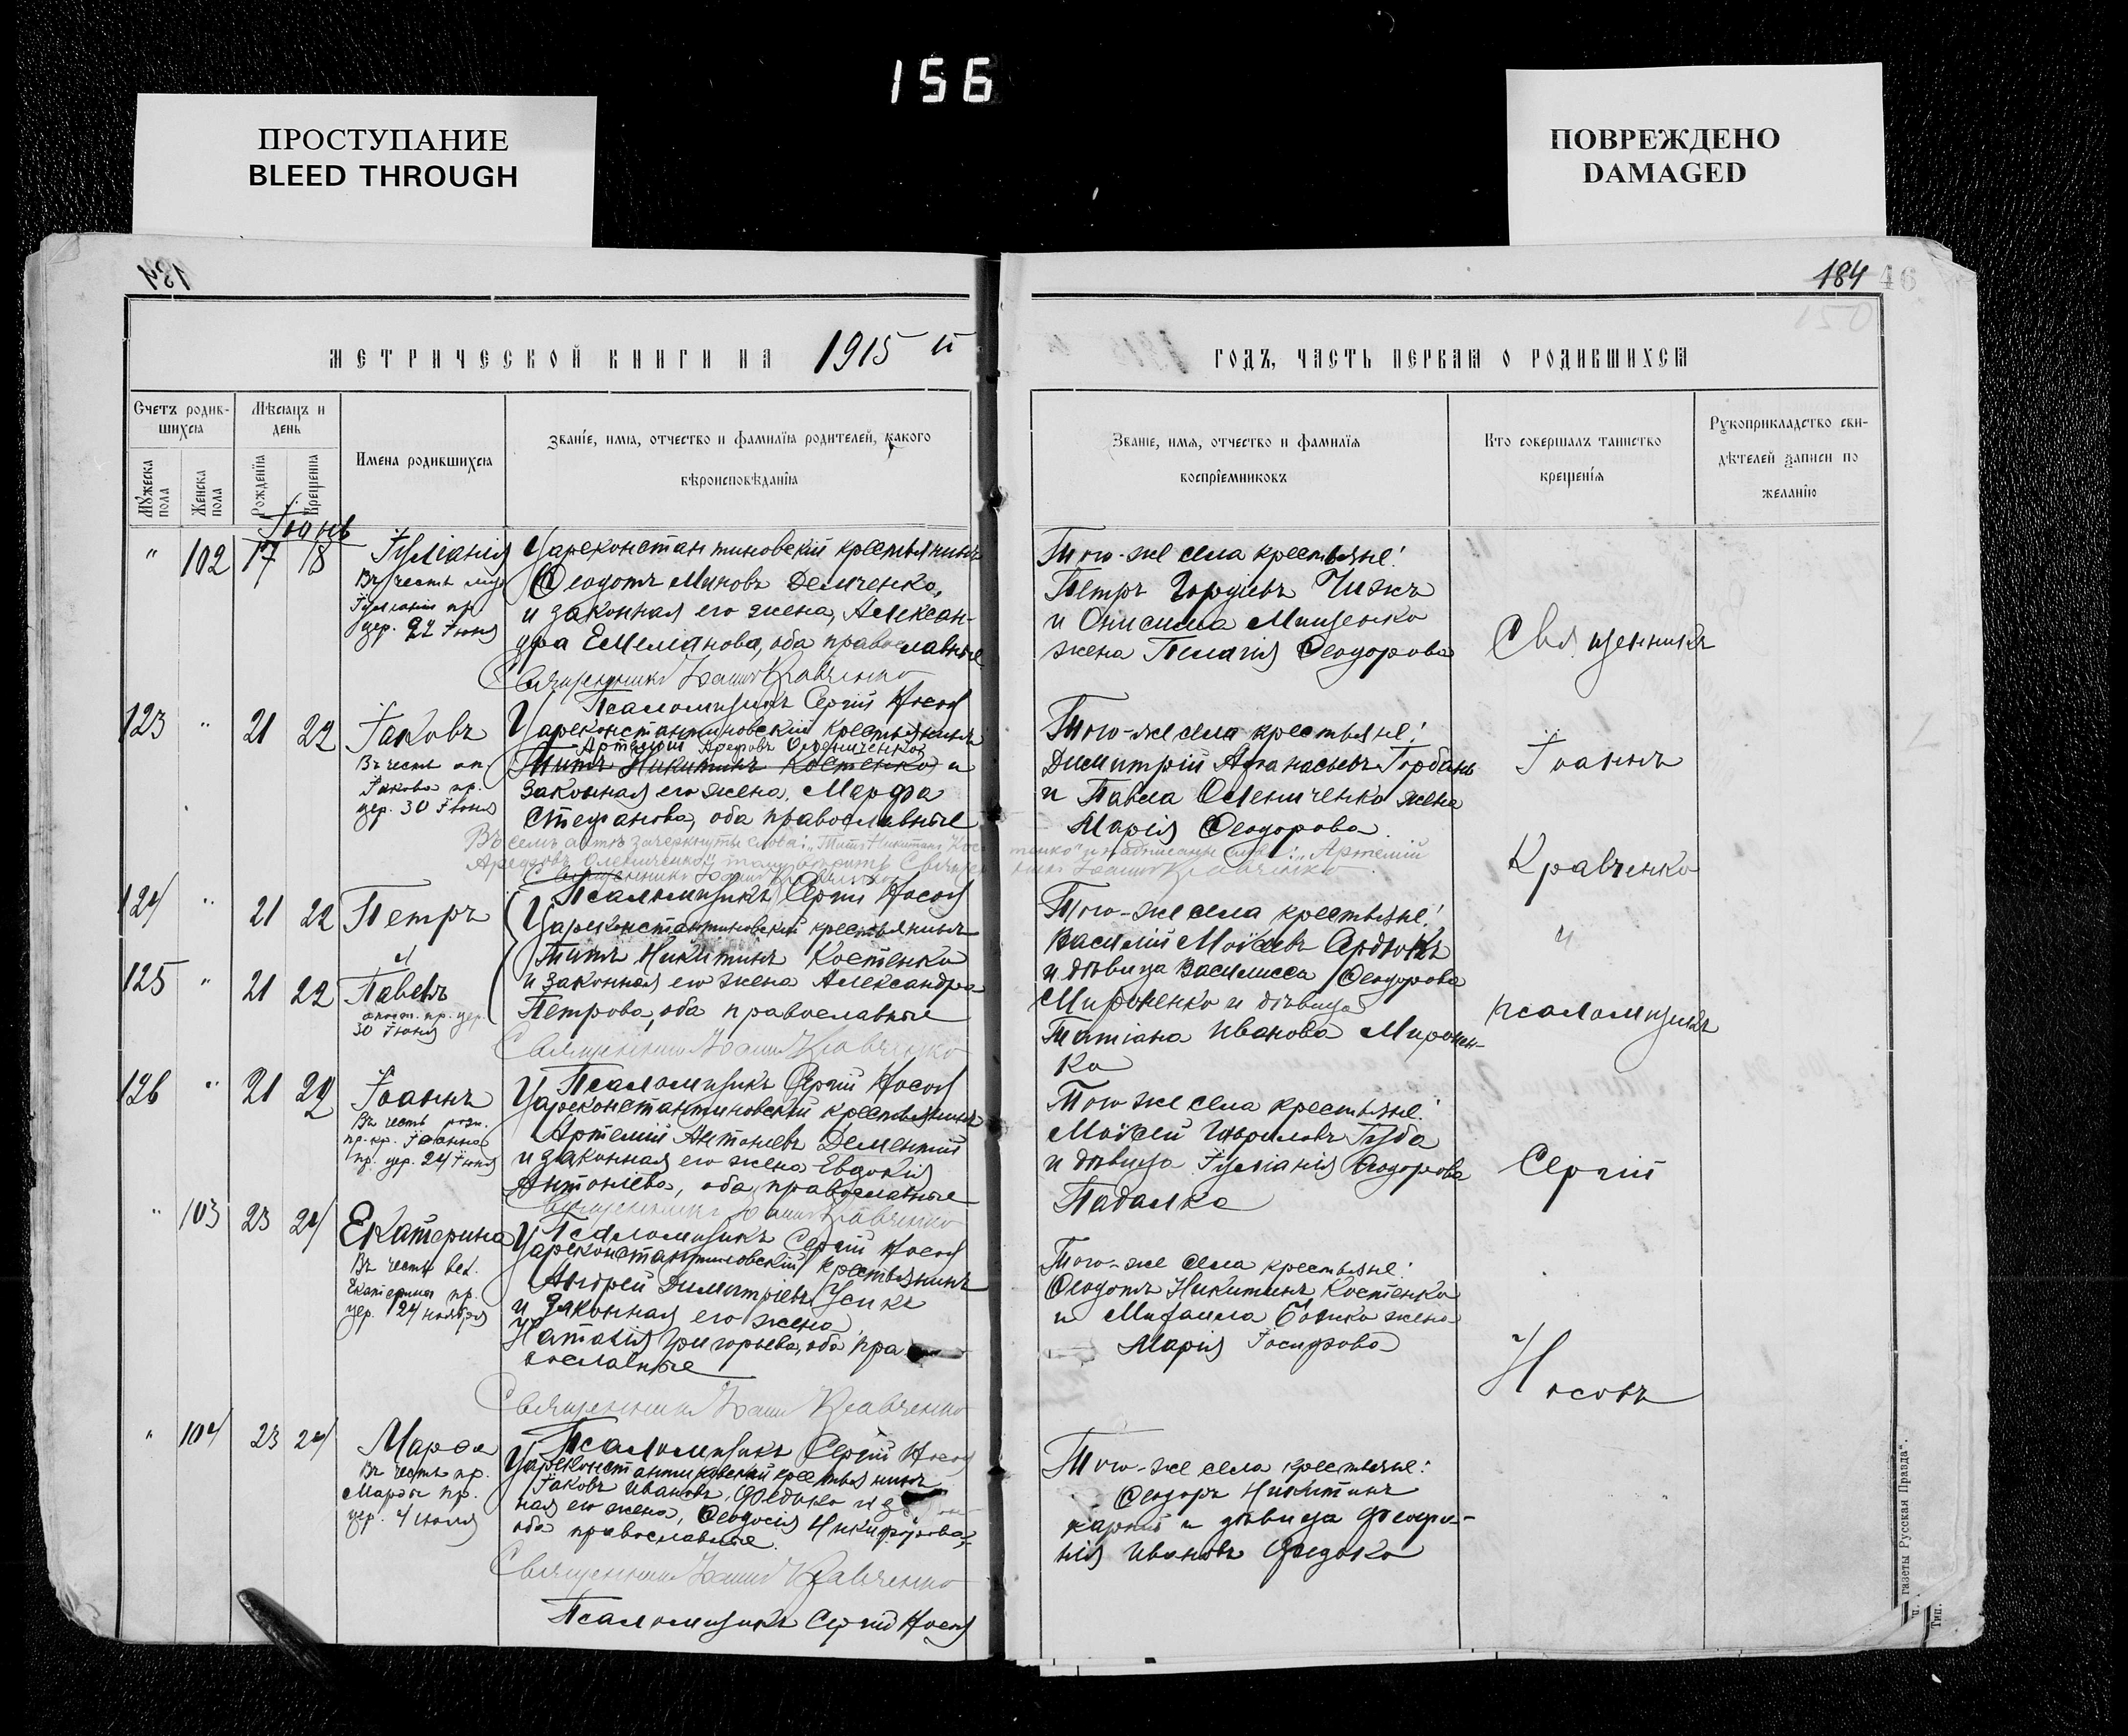 156
ПРОСТУПАНИЕ
BLEED THROUGH
ПОВРЕЖДЕНО
DAMAGED
184
46
МЕТРИЧЕСКОЙ КНИГИ НА 1915 й
ГОДЪ, ЧАСТЬ ПЕРВАЯ О РОДИВШИХСЯ
Счетъ родив-
шихся
Мужеска пола
Женска пола
Мѣсяцъ и
день
Рожденія
Крещенія
Имена родившихся
Званіе, имя, отчество и фамилія родителей, какого
вѣроисповѣданія
Званіе, имя, отчество и фамилія
воспріемниковъ
Кто совершалъ таинство
крещенія
Рукоприкладство сви-
дѣтелей записи по
желанію
Іюнь
" 102 17 18
Іуліанія
Въ честь
Іуліаніи пр.
цер. 22 Іюня
Цареконстантиновскій крестьянинъ
Ѳеодотъ Миновъ Демченко,
и законная его жена, Алексан-
дра Емеліанова, оба православные
Священникъ Іоаннъ Кравченко
Псаломщикъ Сергій Носов
Того-же села крестьяне:
Петръ Гордіевъ Чижъ
и Онисима Мищенко
жена Пелагія Ѳеодорова
123 " 21 22
Іаковъ
Въ честь ап.
Іакова пр.
цер. 30 Іюня
Цареконстантиновскій крестьянинъ
Артемій Арефовъ Олейниченко
Титъ Никитинъ Костенко и
законная его жена, Марфа
Стефанова, оба православные
Въ семъ актѣ зачеркнуты слова: "Титъ Никитинъ Кос-
тенко" и надписаны слова: "Артемій
Священникъ Іоаннъ Кравченко
Псаломщикъ Сергій Носов
Того-же села крестьяне:
Димитрій Аѳанасьевъ Горбань
и Павла Олениченко жена
Марія Ѳеодорова
124 " 21 22
Петръ
и
125 " 21 22
Павелъ
апост. пр. цер.
30 Іюня
Цареконстантиновскій крестьянинъ
Титъ Никитинъ Костенко
и законная его жена Александра
Петрова, оба православные
Священникъ Іоаннъ Кравченко
Псаломщикъ Сергій Носов
Того-же села крестьяне:
Василій Моисеевъ Сердюкъ
и дѣвица Василисса Ѳеодорова
Мироненко и дѣвица
Татіана Иванова Миронен-
ко
126 " 21 22
Іоаннъ
Въ честь рож.
пр. кр. Іоанна
пр. цер. 24 Іюня
Цареконстантиновскій крестьянинъ
Артемій Антоніевъ Дементій
и законная его жена Евдокія
Антоніева, оба православные
Священникъ Іоаннъ Кравченко
Псаломщикъ Сергій Носов
Того же села крестьяне:
Моисей Гавриловъ Губа
и дѣвица Іуліанія Ѳеодорова
Падалка
" 103 23 24
Екатерина
Въ честь вел.
Екатерины пр.
цер. 24 ноября
Цареконстантиновскій крестьянинъ
Андрей Димитріевъ Усикъ
и законная его жена
Наталія Григорьева, оба пра-
вославные
Священникъ Іоаннъ Кравченко
Псаломщикъ Сергій Носов
Того-же села крестьяне:
Ѳеодотъ Никитинъ Костенко
и Михаила Бойко жена
Марія Іосифова
" 104 23 24
Марѳа
Въ честь пр.
Марѳы пр.
цер. 4 іюля
Цареконстантиновскій крестьянинъ
Іаковъ Ивановъ Федько и
ная его жена, Ѳеодосія Никифорова,
оба православные.
Священникъ Іоаннъ Кравченко
Псаломщикъ Сергій Носов
Того-же села крестьяне:
Ѳеодоръ Никитинъ
и дѣвица
Иванова Федько
Священникъ
Іоаннъ
Кравченко
и
псаломщикъ
Сергій
Носовъ
Тип. газеты Русская Правда".